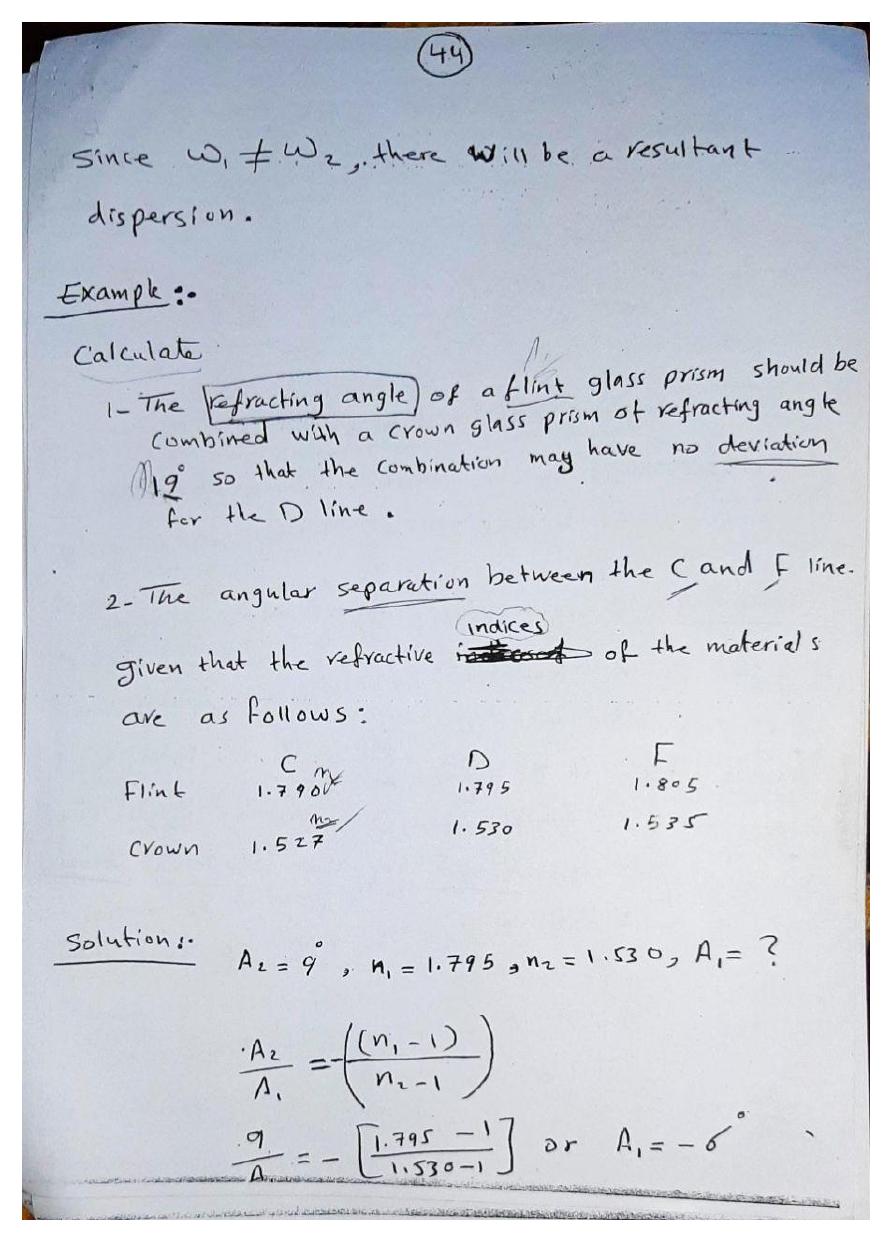 44
Since ω₁ ≠ ω₂, there will be a resultant
dispersion.
Example :-
Calculate
1- The refracting angle of a flint glass prism should be
combined with a crown glass prism of refracting angle
9° so that the combination may have no deviation
for the D line.
2- The angular separation between the C and F line.
given that the refractive indices of the materials
are as follows:
C D F
Flint 1.790 1.795 1.805
Crown 1.527 1.530 1.535
Solution :-
A₂ = 9°, n₁ = 1.795, n₂ = 1.530, A₁ = ?
A₂/A₁ = -((n₁-1)/(n₂-1))
9/A = -[(1.795-1)/(1.530-1)] or A₁ = -6°